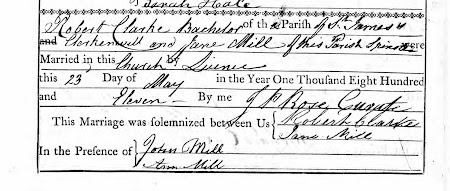 Robert Clarke Bachelor of the Parish of St. James's
and Clerkenwell and Jane Mill of this Parish Spinster were
Married in this Church by Licence
this 23 Day of May in the Year One Thousand Eight Hundred
and Eleven By me J P Rose, Curate
This Marriage was solemnized between Us { Robert Clarke
Jane Mill
In the Presence of { John Mill
Ann Mill